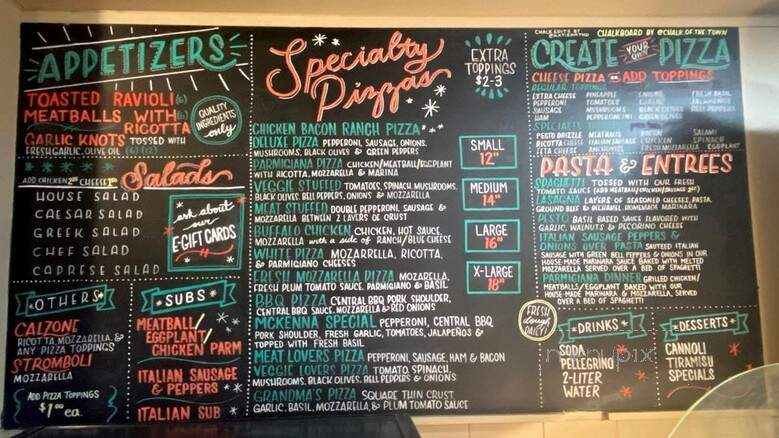 APPETIZERS
TOASTED RAVIOLI (6)
MEATBALLS WITH (6)
RICOTTA
GARLIC KNOTS TOSSED WITH
FRESH GARLIC, OLIVE OIL (6)
QUALITY
INGREDIENTS
only
ADD CHICKEN CHEESE
Salads
HOUSE SALAD
CAESAR SALAD
GREEK SALAD
CHEF SALAD
CAPRESE SALAD
ask about
our
E-GIFT CARDS
OTHERS
CALZONE
RICOTTA, MOZZARELLA, &
ANY PIZZA TOPPINGS
STROMBOLI
MOZZARELLA
ADD PIZZA TOPPINGS
$1.00 ea.
SUBS
MEATBALL/
EGGPLANT/
CHICKEN PARM
ITALIAN SAUSAGE
& PEPPERS
ITALIAN SUB
Specialty
Pizzas
EXTRA
TOPPINGS
$2-3
CHICKEN BACON RANCH PIZZA
DELUXE PIZZA PEPPERONI, SAUSAGE, ONIONS,
MUSHROOMS, BLACK OLIVES & GREEN PEPPERS
PARMIGIANA PIZZA CHICKEN/MEATBALL/EGGPLANT
WITH RICOTTA, MOZZARELLA & MARINA
VEGGIE STUFFED TOMATOES, SPINACH, MUSHROOMS,
BLACK OLIVES, BELL PEPPERS, ONIONS & MOZZARELLA
MEAT STUFFED DOUBLE PEPPERONI, SAUSAGE &
MOZZARELLA BETWEEN 2 LAYERS OF CRUST
BUFFALO CHICKEN CHICKEN, HOT SAUCE,
MOZZARELLA with a side of RANCH/BLUE CHEESE
WHITE PIZZA MOZZARELLA, RICOTTA,
& PARMIGIANO CHEESES
FRESH MOZZARELLA PIZZA MOZARELLA,
FRESH PLUM TOMATO SAUCE, PARMIGIANO & BASIL
BBQ PIZZA CENTRAL BBQ PORK SHOULDER,
CENTRAL BBQ SAUCE, MOZZARELLA & RED ONIONS
MCKENNA SPECIAL PEPPERONI, CENTRAL BBQ
PORK SHOULDER, FRESH GARLIC, TOMATOES, JALAPEÑOS &
TOPPED WITH FRESH BASIL
MEAT LOVERS PIZZA PEPPERONI, SAUSAGE, HAM & BACON
VEGGIE LOVERS PIZZA TOMATO, SPINACH,
MUSHROOMS, BLACK OLIVES, BELL PEPPERS & ONIONS
GRANDMA'S PIZZA SQUARE THIN CRUST,
GARLIC, BASIL, MOZZARELLA, & PLUM TOMATO SAUCE
SMALL
12"
MEDIUM
14"
LARGE
16"
X-LARGE
18"
FRESH
dough
DAILY!
CHALK EDITS BY
CHALKBOARD BY @CHALK.OF.THE.TOWN
CREATE YOUR OWN PIZZA
CHEESE PIZZA OR ADD TOPPINGS
REGULAR TOPPINGS
EXTRA CHEESE PINEAPPLE ONIONS FRESH BASIL
PEPPERONI TOMATOES
SAUSAGE MUSHROOMS BELL PEPPERS
HAM PEPPERONCINI GREEN
SPECIALTY
PESTO DRIZZLE MEATBALLS BACON SALAMI
RICOTTA CHEESE ITALIAN SAUSAGE CHICKEN SPINACH
FETA CHEESE ANCHOVIES FRESH MOZZARELLA EGGPLANT
PASTA & ENTREES
SPAGHETTI TOSSED WITH OUR FRESH
TOMATO SAUCE
LASAGNA LAYERS OF SEASONED CHEESES, PASTA,
GROUND BEEF & MICHAELS HOMEMADE MARINARA
PESTO BASIL BASED SAUCE FLAVORED WITH
GARLIC, WALNUTS & PECORINO CHEESE
ITALIAN SAUSAGE PEPPERS &
ONIONS OVER PASTA SAUTEED ITALIAN
SAUSAGE WITH GREEN BELL PEPPERS & ONIONS IN OUR
HOUSE MADE MARINARA SAUCE BAKED WITH MELTED
MOZZARELLA SERVED OVER A BED OF SPAGHETTI
PARMIGIANA DINNER GRILLED CHICKEN/
MEATBALLS/EGGPLANT BAKED WITH OUR
HOUSE-MADE MARINARA & MOZZARELLA, SERVED
OVER A BED OF SPAGHETTI
DRINKS
SODA
PELLEGRINO
2-LITER
WATER
DESSERTS
CANNOLI
TIRAMISU
SPECIALS
menupix